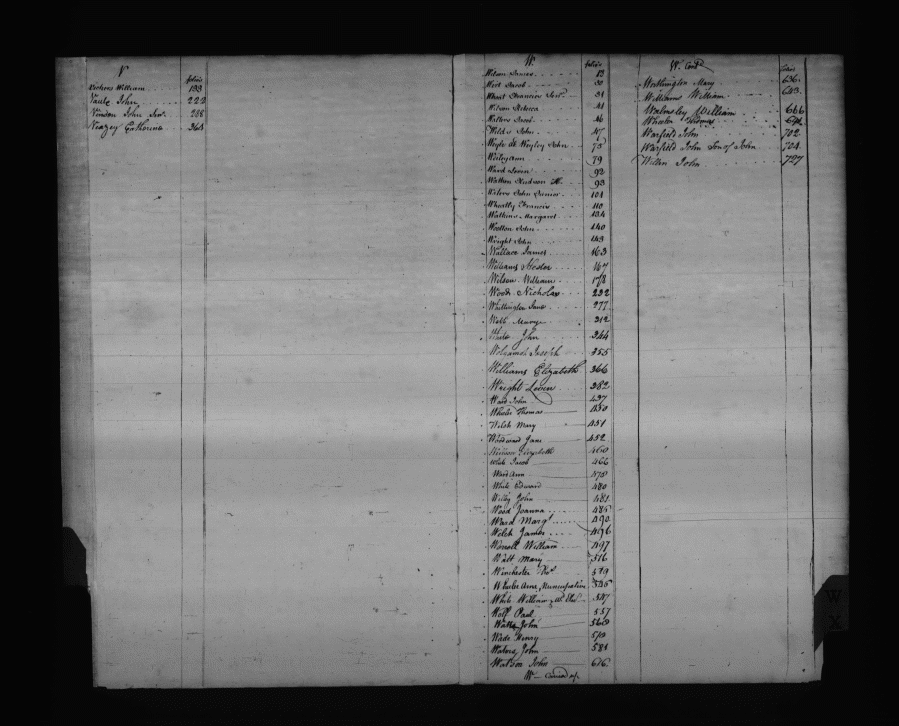 V
folio
William 133
John 222
Vinson John Senr. 288
Veazey Catherine 363
W.
folio
Wilson James 13
West Jacob 30
Francis Senr. 31
Wilson Rebecca 41
Walters Jacob 46
Wilds John 47
Weyle de Weyley John 75
79
Ward Loven 92
Watson Hudson H. 93
Waters John Senior 101
Wheatly Francis 110
Watkins Margaret 134
Wootton John 140
Wright John 143
Wallace James 163
Williams Hester 167
Wilson William 178
Woods Nicholas 232
Whittington Jane 277
Webb 312
John 344
Joseph 355
Williams Elizabeth 366
Wright Loven 382
Ward John 437
Wheeler Thomas 450
Welch Mary 451
Woodward Jane 452
Elizabeth 460
White Jacob 466
Ward Ann 478
White Edward 480
Willey John 481
Wood Joanna 485
Ward Margt. 490
Welch James 496
Worrell William 497
Watt Mary 516
Winchester 519
Wheeler Anne, Nuncupative 545
White William 547
Wolf Paul 557
Watts John 560
Wade Henry 570
Waters John 581
Watson John 616
W
W. Contd.
folio
Worthington Mary 636
Williams William 643
Walmsley William 666
Wheeler Thomas
Warfield John 702
Warfield John Son of John 704
John 727
W
X